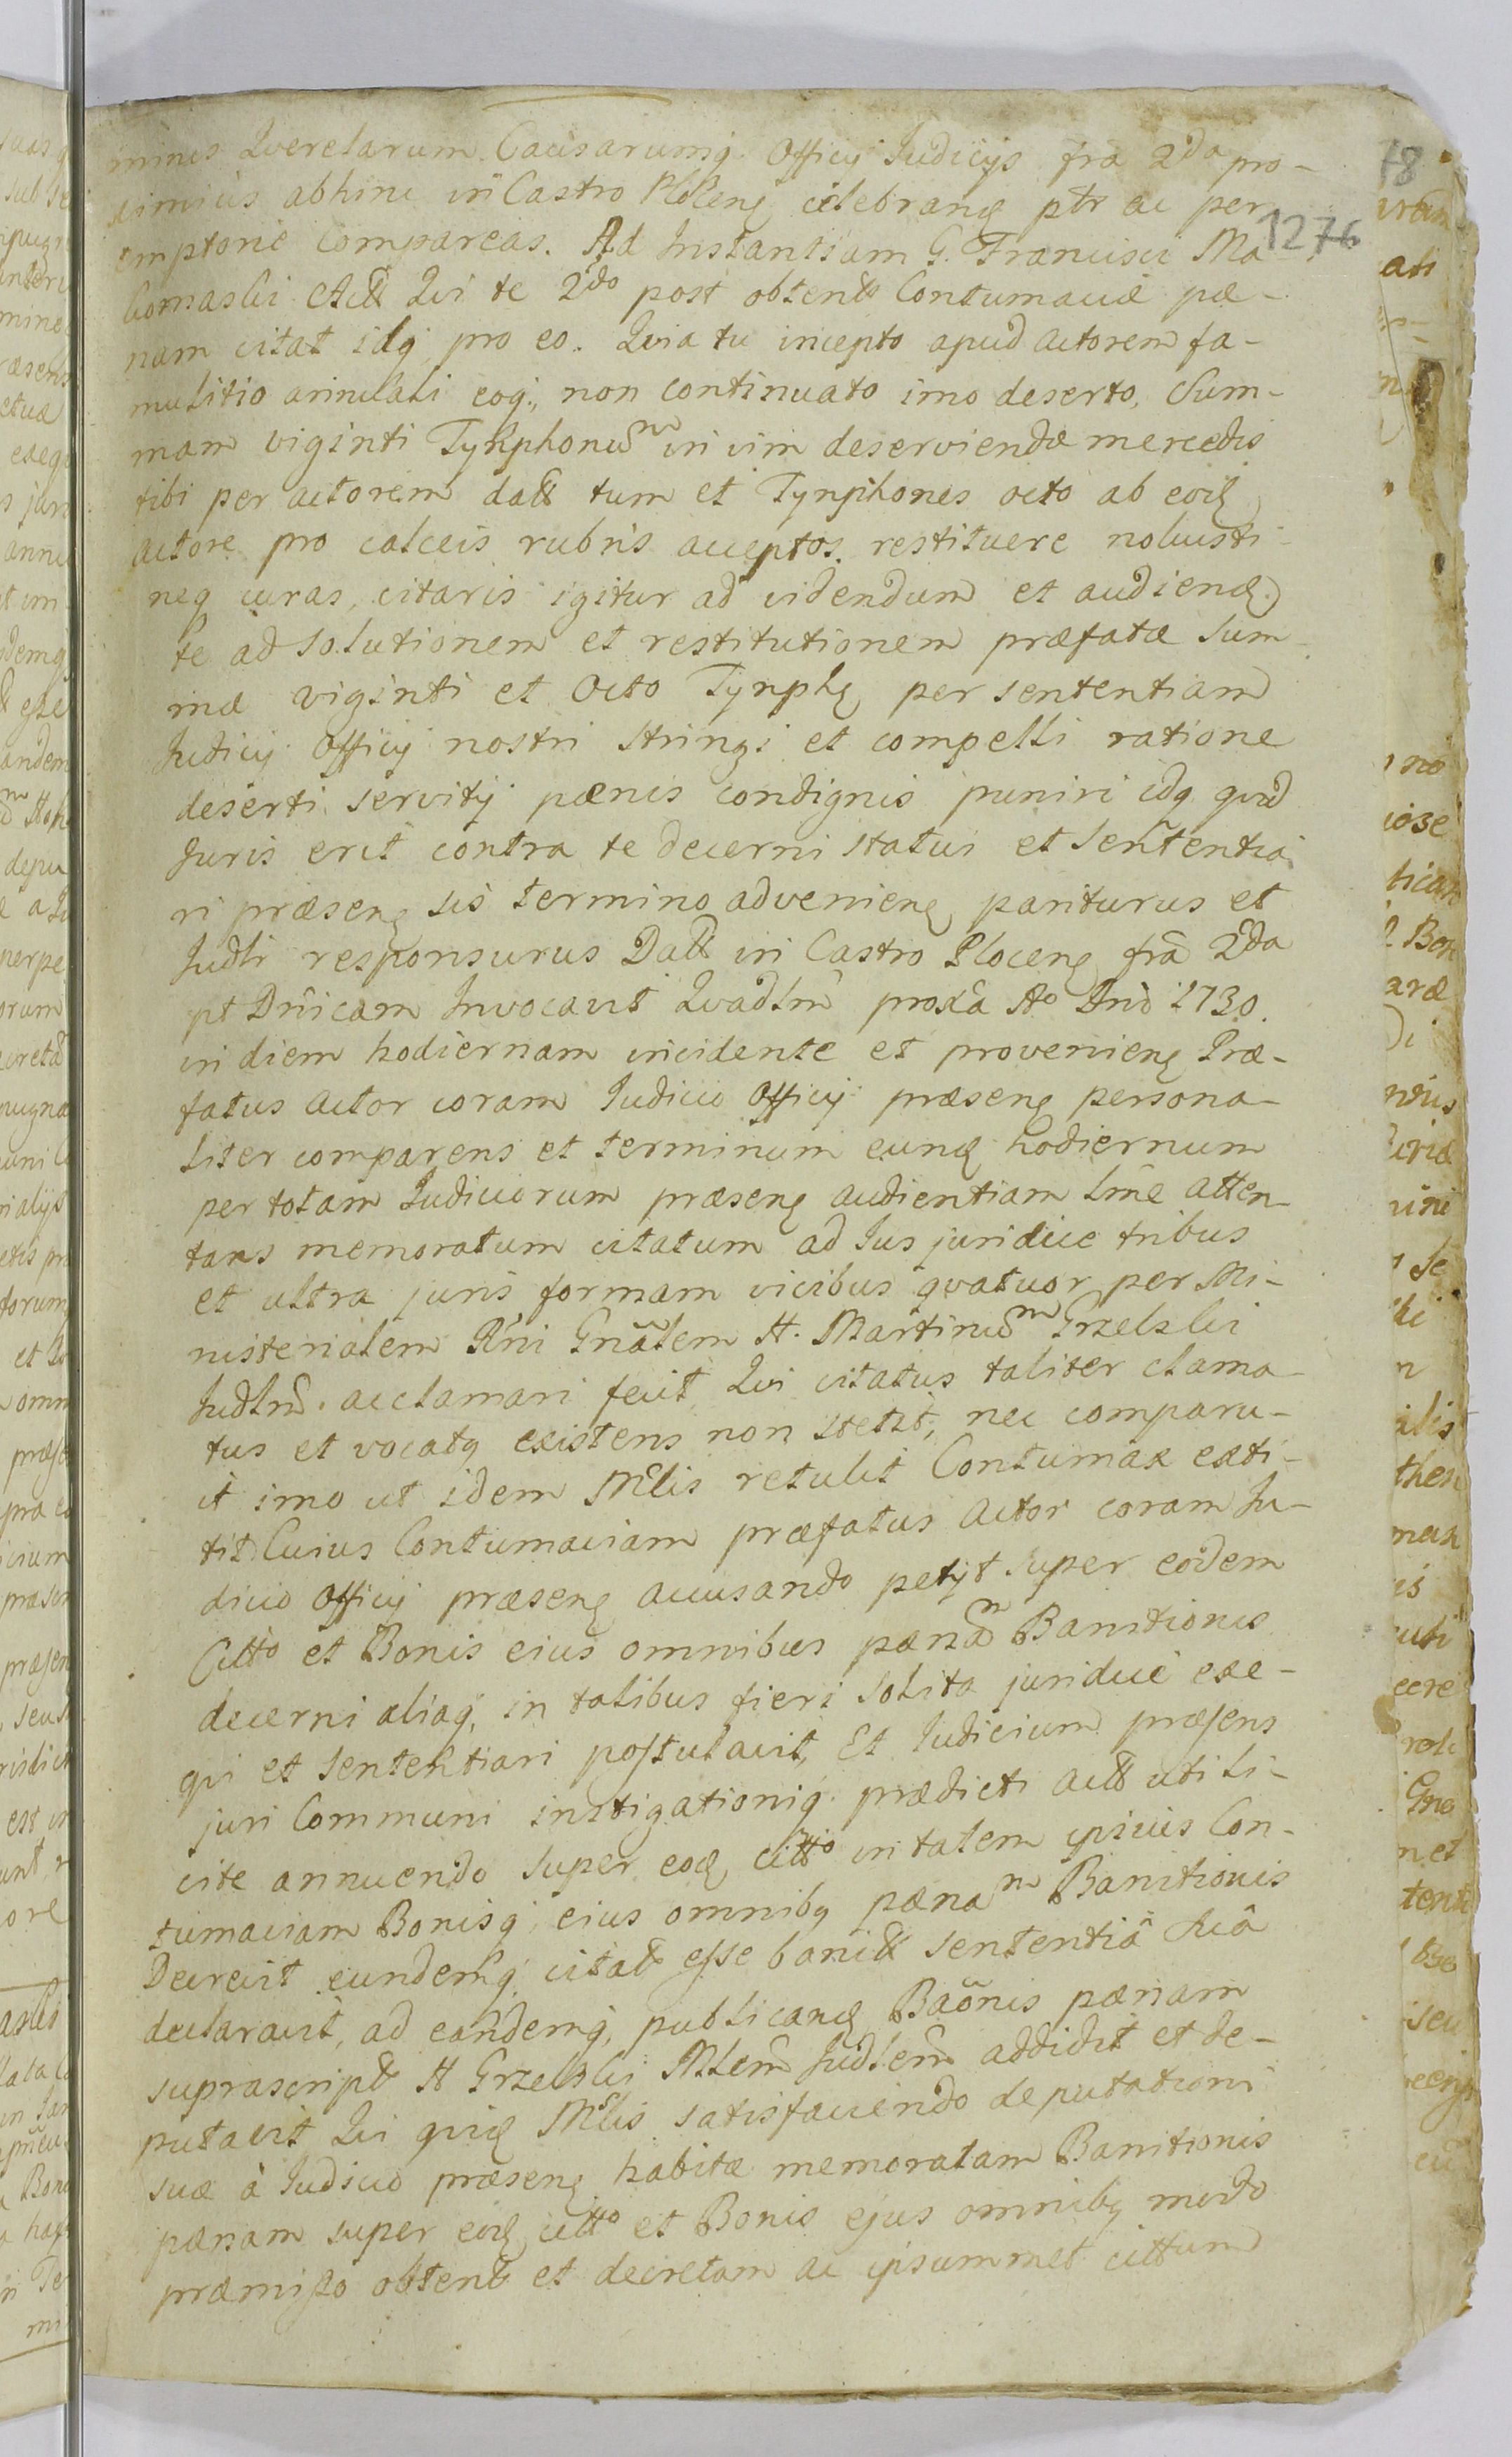 minis Qverelarum Causarumq. Officij Judicijs fra 2da pro-
ximius abhinc in Castro Plocen celebran ptr ac per
emptorie compareas. Ad Instantiam G. Francisci Ma
1276
komaski Act Qvi te 2do post obtent Contumaciæ pæ-
nam citat idq pro eo. Qvia tu incepto apud actorem fa-
mulitio annuali eoq., non continuato imo deserto, Sum-
mam viginti Tynphonum in vim deserviendæ mercedis
tibi per actorem datt tum et Tynphones octo ab eod
actore pro calceis rubris acceptos restituere noluisti
neq curas, citaris igitur ad videndum et audiend
te ad solutionem et restitutionem præfatæ Sum-
mæ viginti et Octo Tynph per sententiam
Judicij Officij nostri stringi et compelli ratione
deserti servitij pænis condignis puniri idq qvid
Juris erit contra te decerni statui et Sententia
ri præsen sis termino advenien pariturus et
Judlr responsurus Datt in Castro Plocen fra 2da
pt Dnicam Invocavit Qvadlm proxa Ao Dni 1730.
in diem hodiernam incidente et provenien Præ-
fatus actor coram Judicio Officij præsen persona-
liter comparens et terminum eund hodiernum
per totam Judiciorum præsen audientiam lme atten-
tans memoratum citatum ad Jus juridice tribus
et ultra juris formam vicibus qvatuor per Mi-
nisterialem Rni Gnalem H. Martinum Grzelski
Judlm acclamari fecit Qvi citatus taliter clama-
tus et vocatq existens non stetit, nec comparu-
it imo ut idem Mlis retulit Contumax exti-
tit Cuius Contumaciam præfatus Actor coram Ju-
dicio Officij præsen accusando petijt super eodem
Citto et Bonis eius omnibus pænam Banitionis
decerni aliaq, in talibus fieri solita juridice exe-
qvi et Sententiari postulavit, Et Judicium præsens
juri Communi instigationiq prædicti act uti li-
cite annuendo super eod citto in talem ipsius Con-
tumaciam Bonisq, eius omnibq pænam Banitionis
Decrevit eundemq citatt esse banitt sententiâ suâ
declaravit, ad eandemq, publicand Baõnis pænam
suprascript H Grzelski Mlem Judlem addidit et de-
putavit Qvi qvid Mlis satisfaciendo deputationi
suæ à Judicio præsen habitæ memoratam Banitionis
pænam super eod citto et Bonis ejus omnibq modo
præmisso obtent et decretam ac ipsummet cittum
78